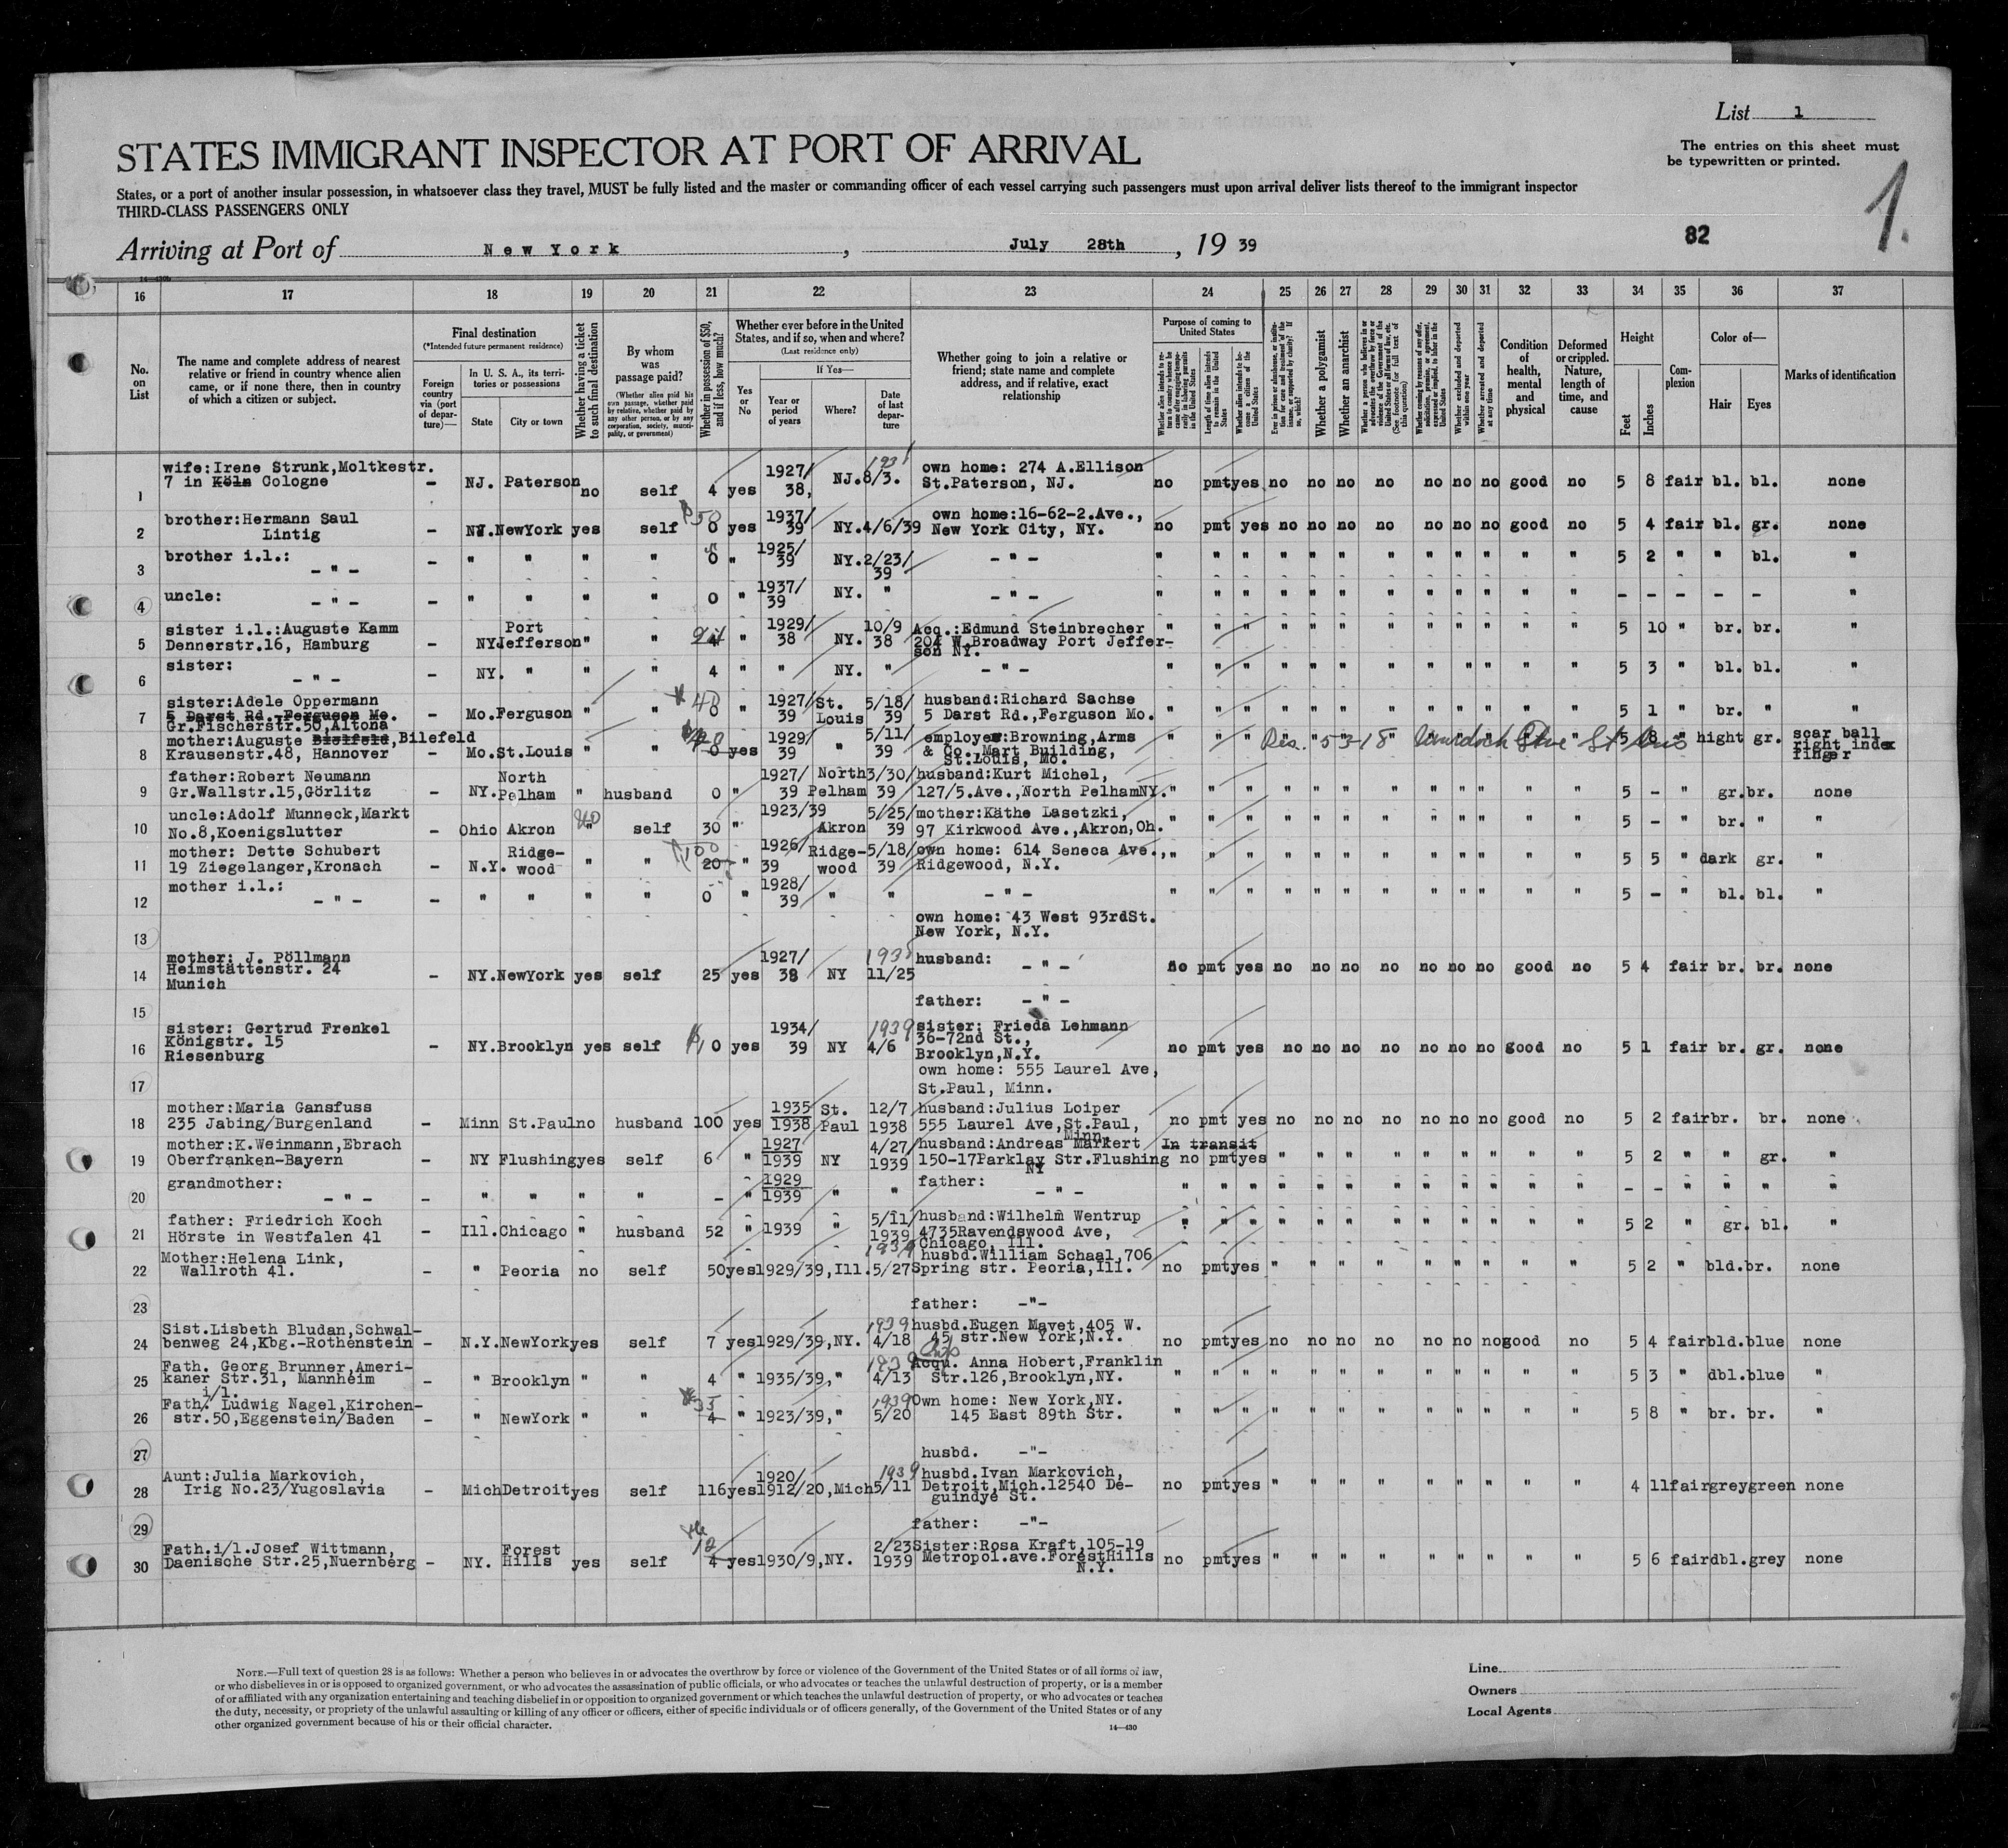 List 1
STATES IMMIGRANT INSPECTOR AT PORT OF ARRIVAL
The entries on this sheet must
be typewritten or printed.
1.
States, or a port of another insular possession, in whatsoever class they travel, MUST be fully listed and the master or commanding officer of each vessel carrying such passengers must upon arrival deliver lists thereof to the immigrant inspector
THIRD-CLASS PASSENGERS ONLY
82
Arriving at Port of New York, July 28th, 19 39
14—430b
16 17 18 19 20 21 22 23 24 25 26 27 28 29 30 31 32 33 34 35 36 37
No. on List
The name and complete address of nearest relative or friend in country whence alien came, or if none there, then in country of which a citizen or subject.
Final destination
(*Intended future permanent residence)
Foreign country via (port of departure)—
In U. S. A., its territories or possessions
State
City or town
Whether having a ticket to such final destination
By whom was passage paid?
(Whether alien paid his own passage, whether paid by relative, whether paid by any other person, or by any corporation, society, municipality, or government)
Whether in possession of $50, and if less, how much?
Whether ever before in the United States, and if so, when and where?
(Last residence only)
Yes or No
If Yes—
Year or period of years
Where?
Date of last departure
Whether going to join a relative or friend; state name and complete address, and if relative, exact relationship
Purpose of coming to United States
Length of time alien intends to remain in the United States
Whether alien intends to become a citizen of the United States
Whether a polygamist
Whether an anarchist
Whether excluded and deported within one year
Whether arrested and deported at any time
Condition of health, mental and physical
Deformed or crippled. Nature, length of time, and cause
Height
Feet
Inches
Complexion
Color of—
Hair
Eyes
Marks of identification
1 wife:Irene Strunk,Moltkestr. 7 in Köln Cologne – NJ. Paterson no self 4 yes 1927/38, NJ. 8/3. 1938 own home: 274 A.Ellison St.Paterson, NJ. no pmt yes no no no no no no no good no 5 8 fair bl. bl. none
2 brother:Hermann Saul Lintig – NY. NewYork yes self 50 0 yes 1937/39 NY. 4/6/39 own home:16-62-2.Ave., New York City, NY. no pmt yes no no no no no no no good no 5 4 fair bl. gr. none
3 brother i.l.: – " – – " " " " 0 " 1925/39 NY. 2/23/39 – " – " " " " " " " " " " " " 5 2 " " bl. "
4 uncle: – " – – " " " " 0 " 1937/39 NY. " – " – " " " " " " " " " " " " – – – – – "
5 sister i.l.:Auguste Kamm Dennerstr.16, Hamburg – NY Port Jefferson " " 4 " 1929/38 NY. 10/9 38 Acq.:Edmund Steinbrecher 204 W.Broadway Port Jefferson NY. " " " " " " " " " " " " 5 10 " br. br. "
6 sister: – " – – NY. " " " 4 " " NY. " – " – " " " " " " " " " " " " 5 3 " bl. bl. "
7 sister:Adele Oppermann 5 Darst Rd. Ferguson Mo. Gr.Fischerstr.50,Altona – Mo. Ferguson " " 40 0 " 1927/39 St. Louis 5/18/39 husband:Richard Sachse 5 Darst Rd.,Ferguson Mo. " " " " " " " " " " " " 5 1 " br. " "
8 mother:Auguste Bielfeld,Bilefeld Krausenstr.48, Hannover – Mo. St.Louis " " 0 yes 1929/39 " 5/11/39 employer:Browning,Arms & Co. Mart Building, St.Louis, Mo. Res. 5318 Murdoch St 5 8 " hight gr. scar ball right index finger
9 father:Robert Neumann Gr.Wallstr.15,Görlitz – NY. North Pelham " husband 0 " 1927/39 North Pelham 3/30/39 husband:Kurt Michel, 127/5.Ave.,North PelhamNY. " " " " " " " " " " " " 5 – " gr. br. none
10 uncle:Adolf Munneck,Markt No.8,Koenigslutter – Ohio Akron " self 30 " 1923/39 Akron 5/25/39 mother:Käthe Lasetzki, 97 Kirkwood Ave.,Akron,Oh. " " " " " " " " " " " " 5 – " br. " "
11 mother: Dette Schubert 19 Ziegelanger,Kronach – N.Y. Ridgewood " " 100 20 " 1926/39 Ridgewood 5/18/39 own home: 614 Seneca Ave., Ridgewood, N.Y. " " " " " " " " " " " " 5 5 " dark gr. "
12 mother i.l.: – " – – " " " " 0 " 1928/39 " " – " – " " " " " " " " " " " " 5 – " bl. bl. "
13 own home: 43 West 93rdSt. New York, N.Y.
14 mother: J. Pöllmann Heimstättenstr. 24 Munich – NY. NewYork yes self 25 yes 1927/38 NY 1938 11/25 husband: – " – no pmt yes no no no no no no no good no 5 4 fair br. br. none
15 father: – " –
16 sister: Gertrud Frenkel Königstr. 15 Riesenburg – NY. Brooklyn yes self 10 yes 1934/39 NY 1939 4/6 sister: Frieda Lehmann 36-72nd St., Brooklyn,N.Y. no pmt yes no no no no no no no good no 5 1 fair br. gr. none
17 own home: 555 Laurel Ave, St.Paul, Minn.
18 mother:Maria Gansfuss 235 Jabing/Burgenland – Minn St.Paul no husband 100 yes 1935 1938 St. Paul 12/7 1938 husband:Julius Loiper 555 Laurel Ave,St.Paul, Minn. no pmt yes no no no no no no no good no 5 2 fair br. br. none
19 mother:K.Weinmann,Ebrach Oberfranken-Bayern – NY Flushing yes self 6 " 1927 1939 NY 4/27/1939 husband:Andreas Markert 150-17Parklay Str.Flushing NY In transit no pmt yes " " " " " " " " " 5 2 " " gr. "
20 grandmother: – " – – " " " " – " 1929 1939 " " father: – " – " " " " " " " " " " " " – – " " " "
21 father: Friedrich Koch Hörste in Westfalen 41 – Ill. Chicago " husband 52 " 1939 " 5/11/1939 husband:Wilhelm Wentrup 4735Ravendswood Ave, Chicago, Ill. " " " " " " " " " " " " 5 2 " gr. bl. "
22 Mother:Helena Link, Wallroth 41. – " Peoria no self 50 yes 1929/39, Ill. 1939 5/27 husbd.William Schaal,706 Spring str. Peoria,Ill. no pmt yes " " " " " " " " " 5 2 " bld. br. none
23 father: –"–
24 Sist.Lisbeth Bludan,Schwalbenweg 24,Kbg.-Rothenstein – N.Y. NewYork yes self 7 yes 1929/39, NY. 1939 4/18 husbd.Eugen Mavet,405 W. 45 str.New York,N.Y. no pmt yes no no no no no no no good no 5 4 fair bld. blue none
25 Fath. Georg Brunner,Amerikaner Str.31, Mannheim – " Brooklyn " " 4 " 1935/39, " 1939 4/13 Acqu. Anna Hobert,Franklin Str.126,Brooklyn,NY. " " " " " " " " " " " " 5 3 " dbl. blue "
26 Fath. i/l. Ludwig Nagel,Kirchenstr.50,Eggenstein/Baden – " NewYork " " 35 4 " 1923/39, " 1939 5/20 Own home: New York,NY. 145 East 89th Str. " " " " " " " " " " " " 5 8 " br. br. "
27 husbd. –"–
28 Aunt:Julia Markovich, Irig No.23/Yugoslavia – Mich Detroit yes self 116 yes 1920/ 1912/20, Mich 1939 5/11 husbd.Ivan Markovich, Detroit,Mich.12540 Deguindye St. no pmt yes " " " " " " " " " 4 11 fair grey green none
29 father: –"–
30 Fath.i/l.Josef Wittmann, Daenische Str.25,Nuernberg – NY. Forest Hills yes self 12 4 yes 1930/9, NY. 2/23 1939 Sister:Rosa Kraft,105-19 Metropol.ave.ForestHills N.Y. no pmt yes " " " " " " " " " 5 6 fair dbl. grey none
NOTE.—Full text of question 28 is as follows: Whether a person who believes in or advocates the overthrow by force or violence of the Government of the United States or of all forms of law,
or who disbelieves in or is opposed to organized government, or who advocates the assassination of public officials, or who advocates or teaches the unlawful destruction of property, or is a member
of or affiliated with any organization entertaining and teaching disbelief in or opposition to organized government or which teaches the unlawful destruction of property, or who advocates or teaches
the duty, necessity, or propriety of the unlawful assaulting or killing of any officer or officers, either of specific individuals or of officers generally, of the Government of the United States or of any
other organized government because of his or their official character.
14—430
Line
Owners
Local Agents